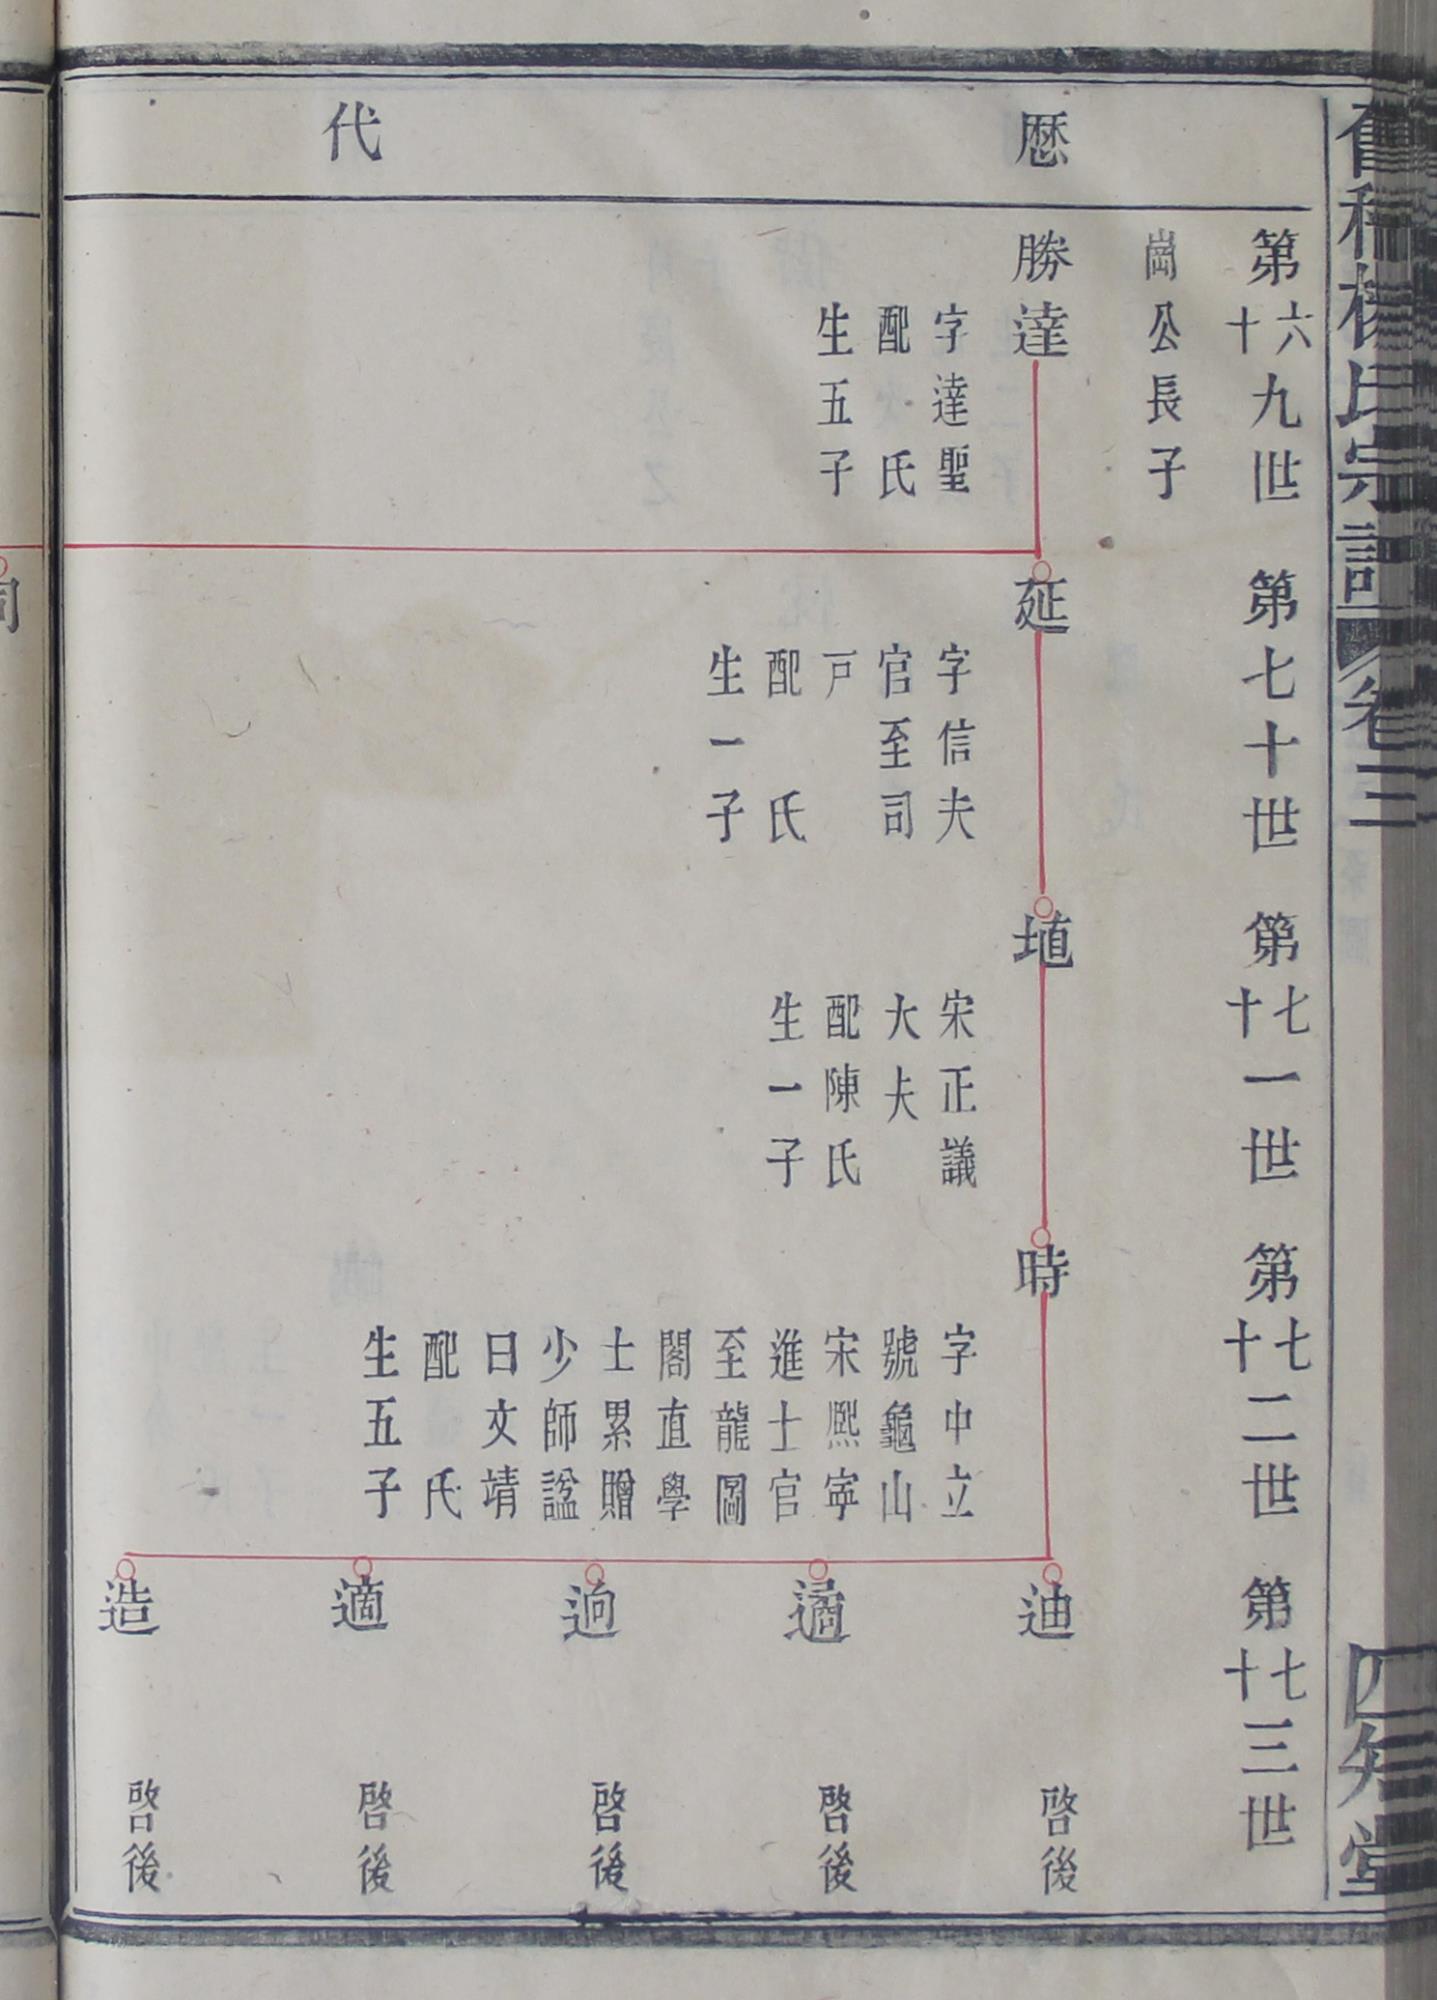 歷代
第六十九世
第七十世
第七十一世
第七十二世
第七十三世
崗公長子
勝達
字達聖
配 氏
生五子
延
字信夫
官至司
戸
配 氏
生一子
埴
宋正議
大夫
配陳氏
生一子
時
字中立
號龜山
宋熙寧
進士官
至龍圖
閣直學
士累贈
少師諡
曰文靖
配 氏
生五子
迪
啓後
遹
啓後
逈
啓後
適
啓後
造
啓後
楊氏宗譜
卷三
四知堂